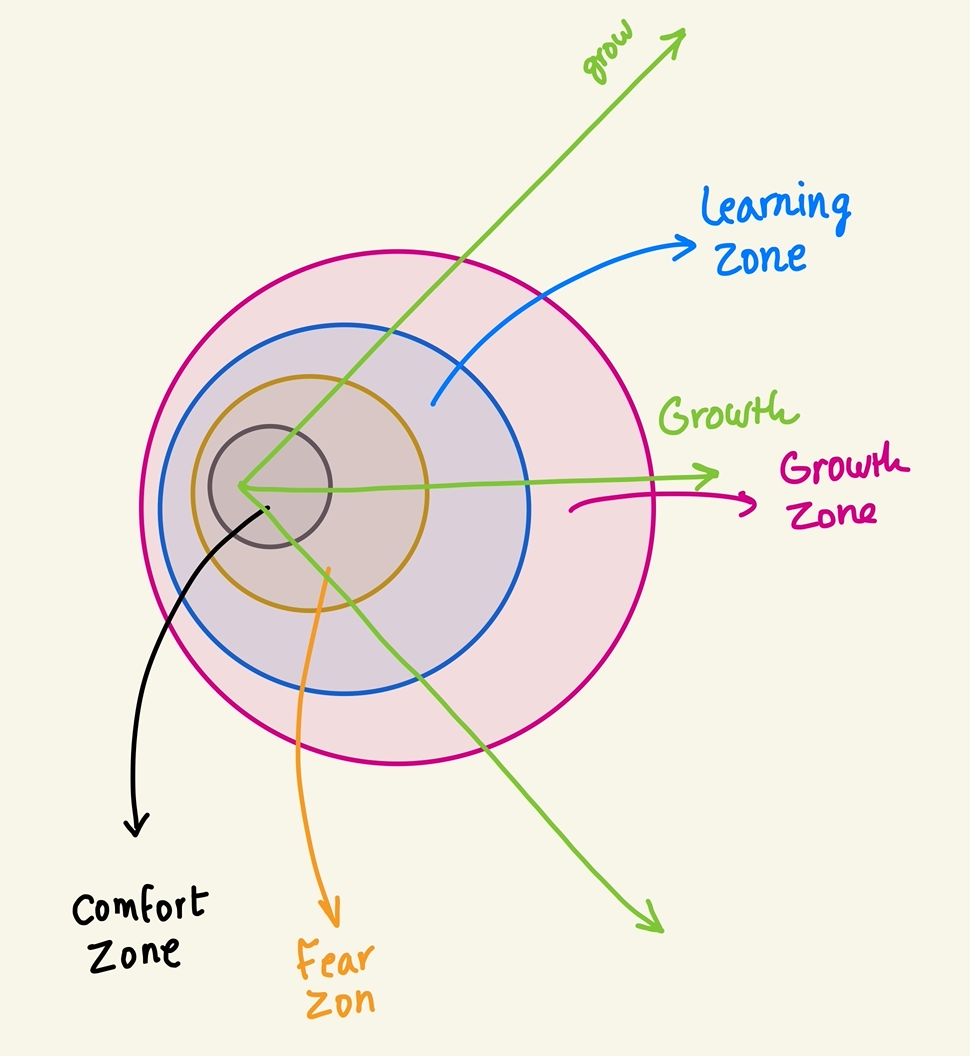 grow
Learning
Zone
Growth
Growth
Zone
Comfort
Zone
Fear
Zon